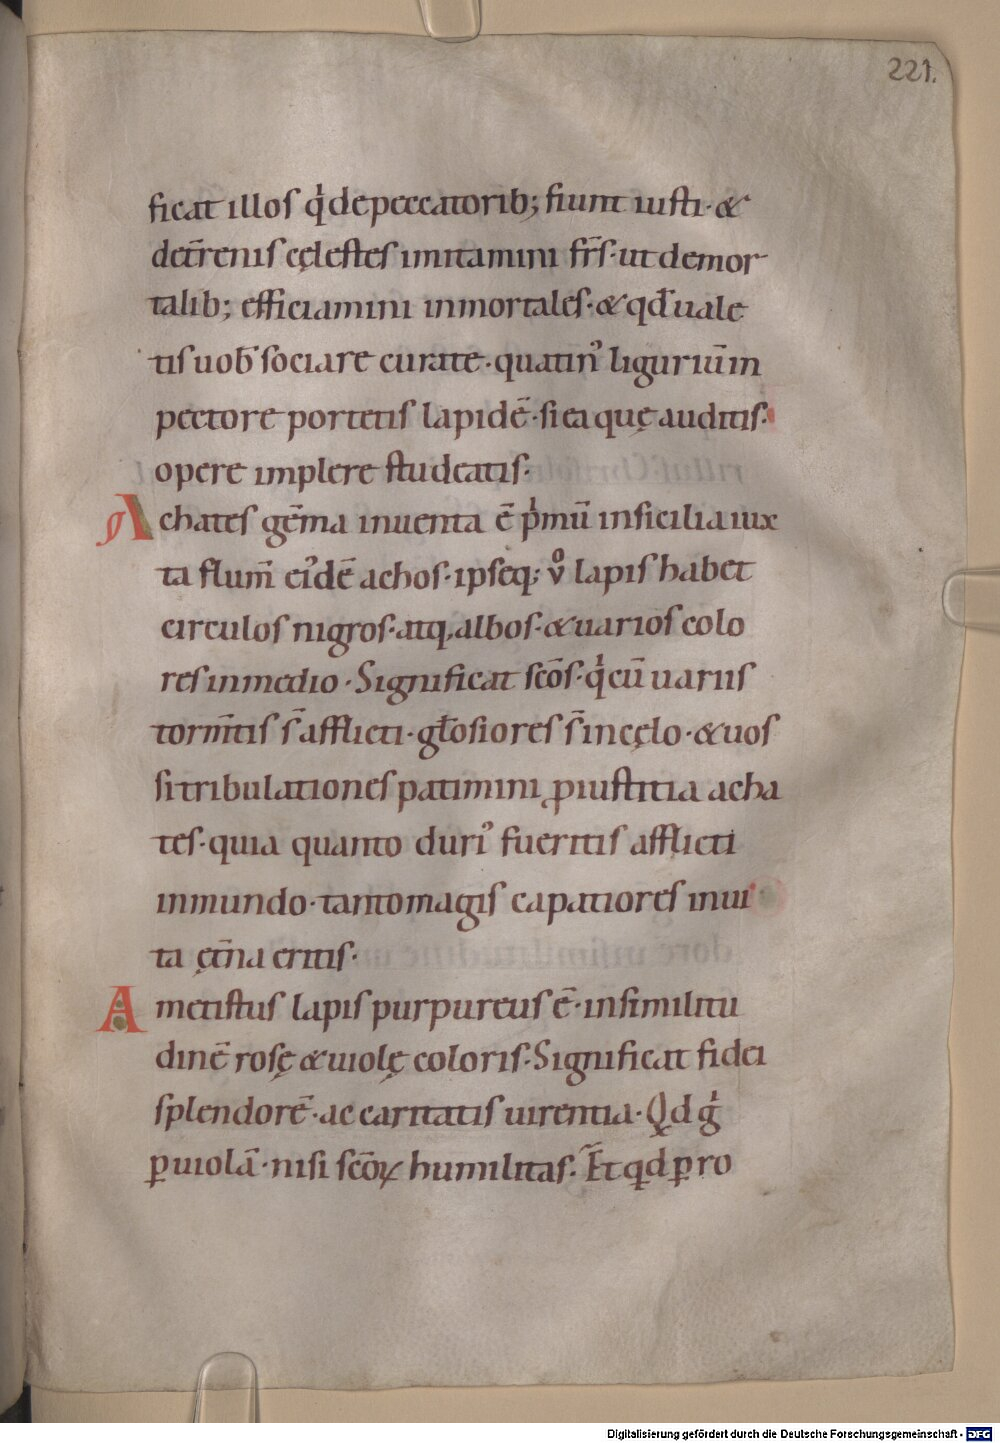 221.
ficat illos q̇ de peccatorib; fiunt iusti · &
det̄renis cęlestes imitamini fr̄s · ut demor
talib; efficiamini inmortales · & qđ uale
tis uob̄ sociare curate · quatin᾽ liguriū in
pectore portetis lapidē · si ea quę auditis ·
opere implere studeatis ·
Achates gēma inuenta ē p̍mū insicilia iux
ta flum̄ ei᾽dē achos · ipseq; v̊ lapis habet
circulos nigros · atq, albos · & uarios colo
res inmedio · Significat sc̄os · q̇ cū uariis
torm̄tis s̄ afflicti · gło siores s̄ incęlo · & uos
si tribulationes patimini ꝓiustitia acha
tes · quia quanto duri᾽ fueritis afflicti
inmundo · tantomagis capatiores inui
ta ęt̄na eritis ·
Ametistus lapis purpureus ē · insimilitu
dinē rosę & uiolę coloris · Significat fidei
splendorē · ac caritatis uirentia · Qd g̍
ꝑ uiolā · nisi sc̄oꝝ humilitas · Et qd ꝑ ro
Digitalisierung gefördert durch die Deutsche Forschungsgemeinschaft - DFG